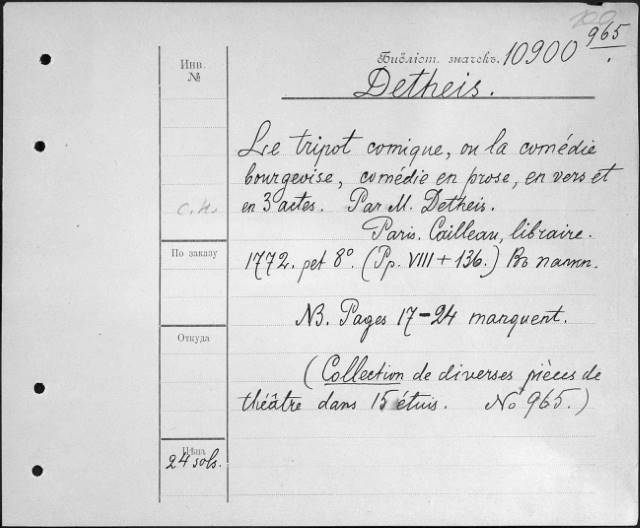 965
Инв.
№
Библіот. значекъ. 10900
Detheis.
Le tripot comique, ou la comédie
bourgeoise, comédie en prose, en vers et
en 3 actes. Par M. Detheis.
Paris. Cailleau, libraire.
1772. pet 8º. (Pp. VIII + 136.) Въ папк.
С.Н.
По заказу
NB. Pages 17-24 manquent.
Откуда
(Collection de diverses pièces de
théâtre dans 15 étuis. No 965.)
Цѣна
24 sols.